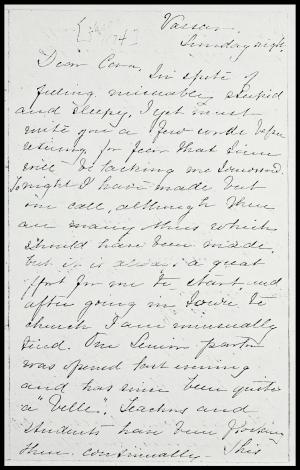 Vassar.
Sunday night.
Dear Cora.
In spite of
feeling miserably stupid
and sleepy, I yet must
write you a few words before
retiring for fear that time
will be lacking me tomorrow.
Tonight I have made but
one call, although there
are many thus which
should have been made,
but it is a great
effort for me to start, and
after going in town to
church I am unusually
tired. Our Senior parlor
was opened last evening
and has since been quite
a "Belle". Teachers and
students have been
there continually. This